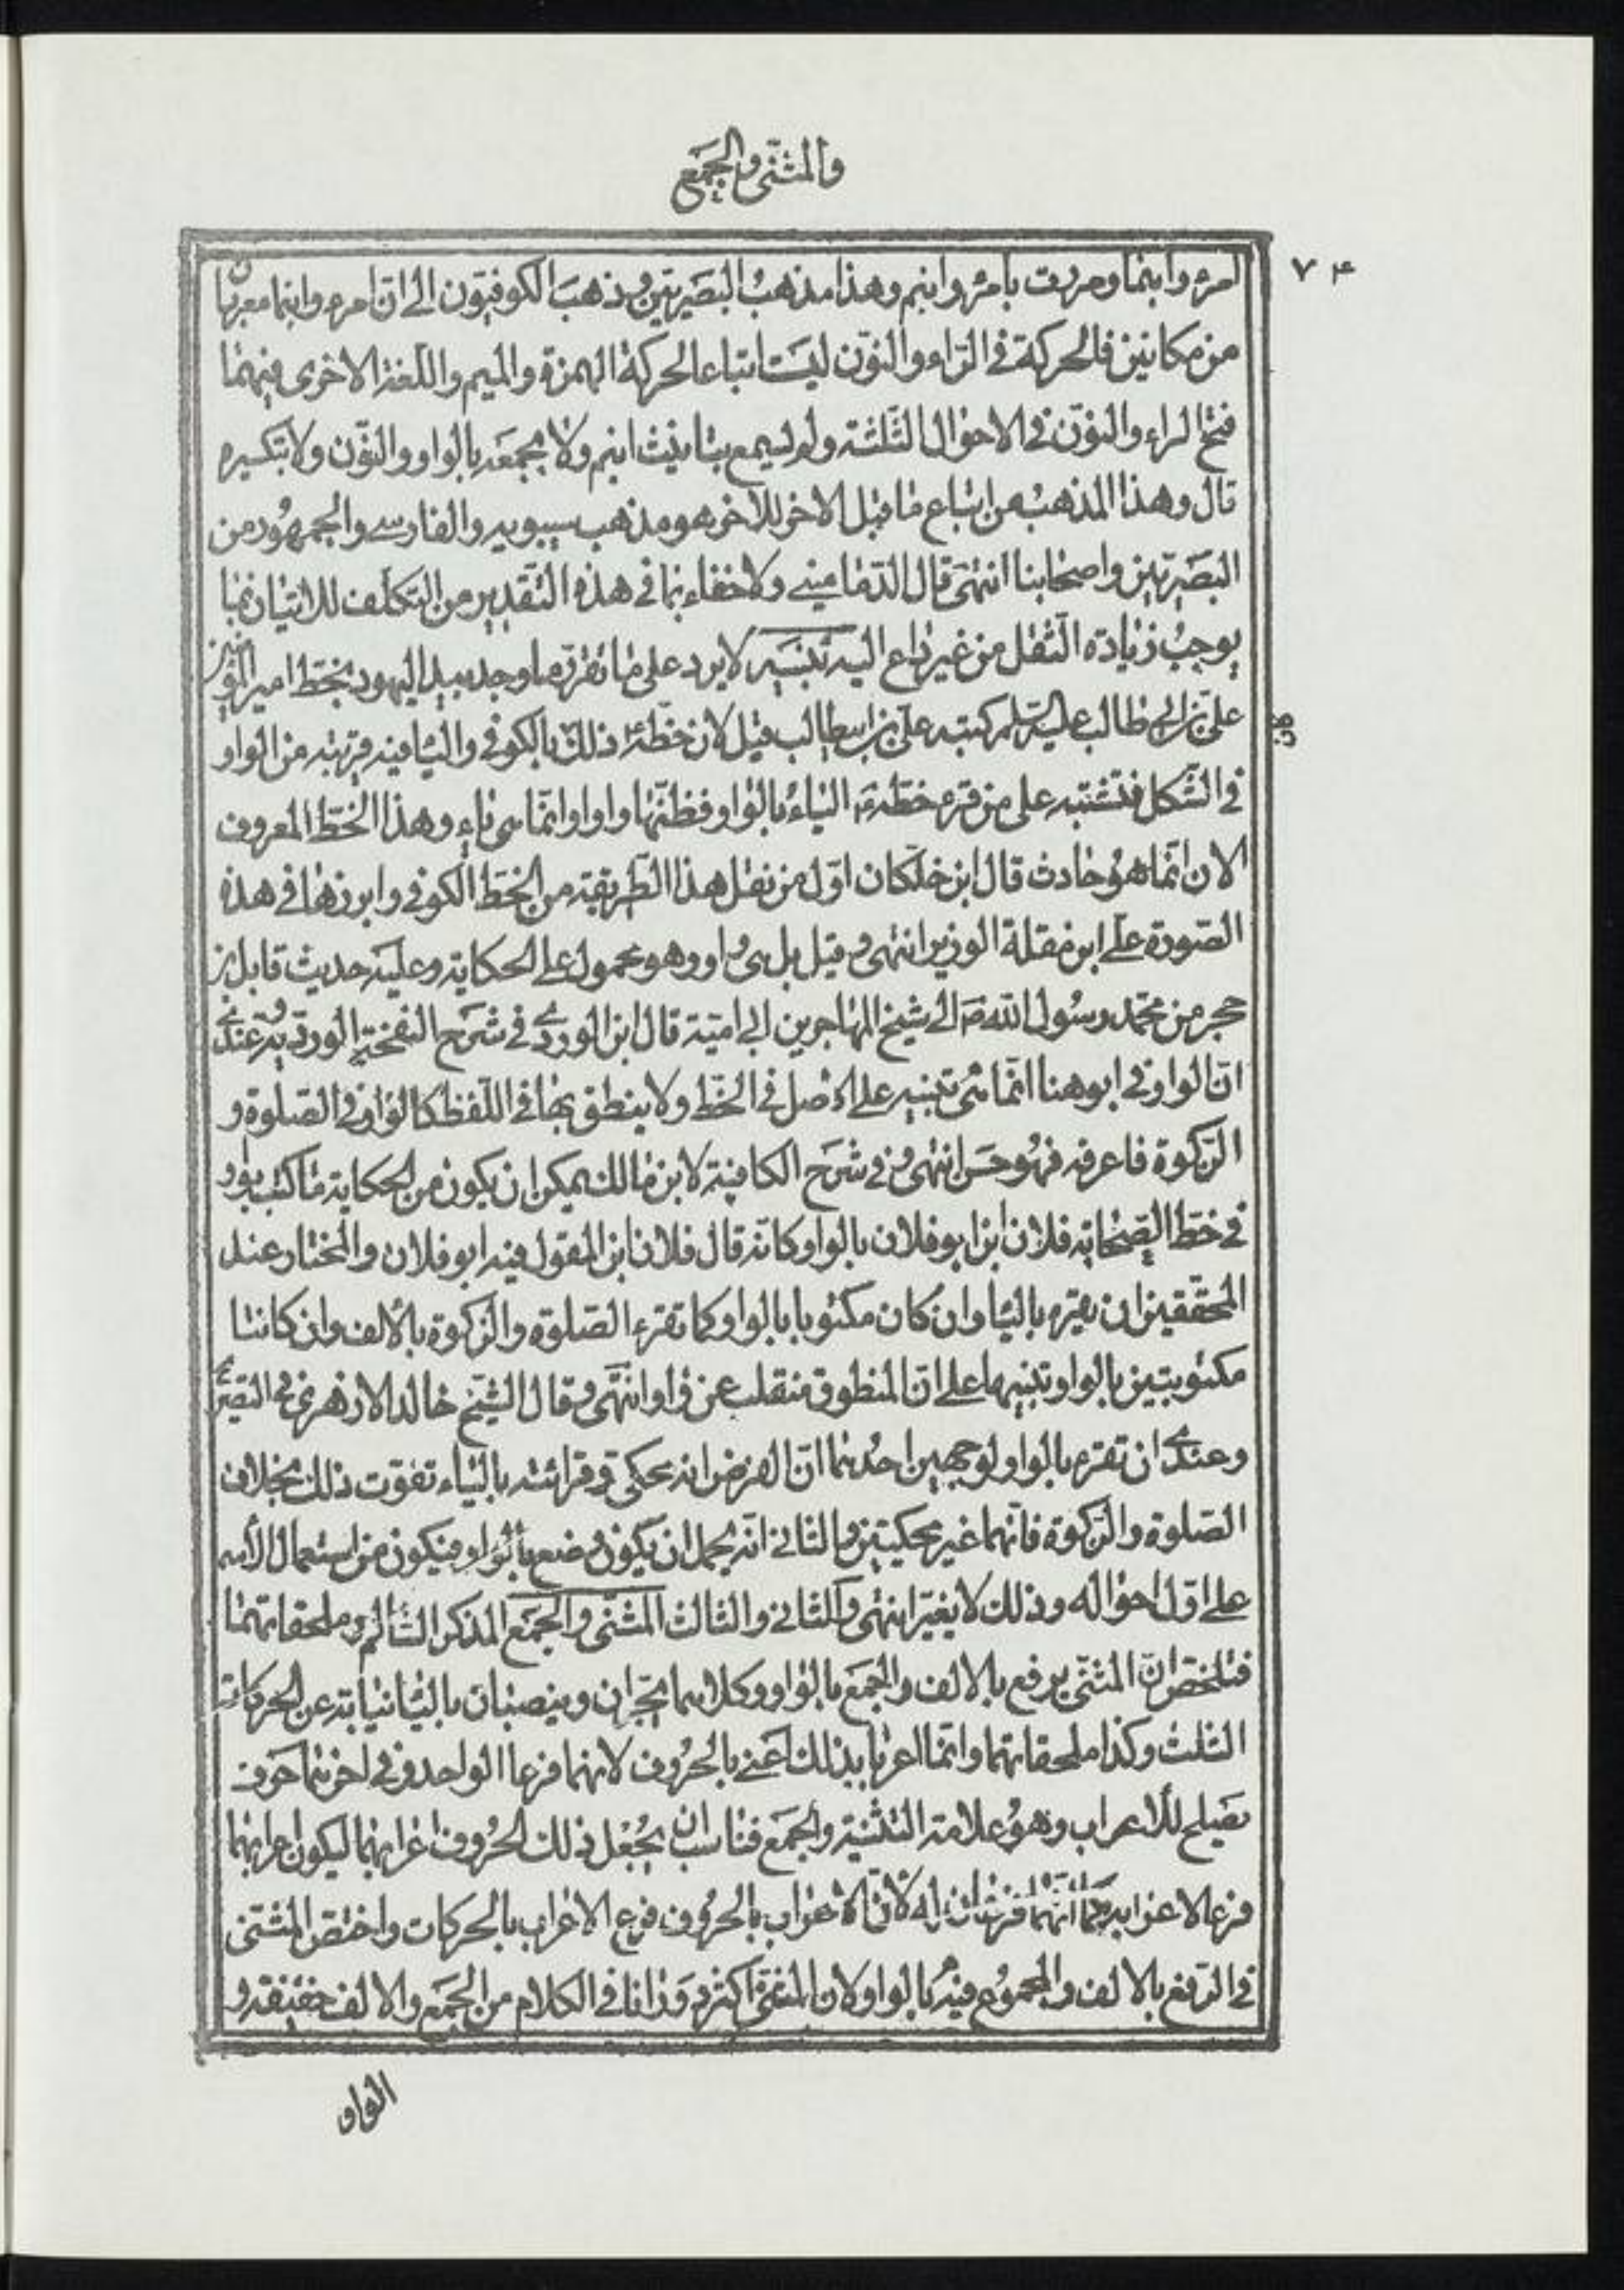 والمثنّى والجمع
٧٤
امرء وابنما ومررت بامرء وابنم وهذا مذهب البصريّين وذهب الكوفيّون الى انّ امرء وابنما معربان
من مكانين فالحركة في الرّاء والنوّن ليست اتباعا لحركة الهمزة والميم واللّغة الاخرى فيهما
فتح الراء والنوّن في الاحوال الثّلثة ولم يسمع بتانيث ابنم ولا بجمعه بالواو والنوّن ولا بتكسيره
قال وهذا المذهب من اتباع ما قبل الاخر للاخر هو مذهب سيبويه والفارسے والجمهور من
البصريّين واصحابنا انتهى قال الدّمامينے ولا خفاء بما في هذه التّقدير من التكلّف للاتيان بما
يوجب زيادة الثّقل من غير داع اليه تنبيه لا يرد على ما تقرّر ما وجد بيد اليهود بخطّ امير المؤمنين
علىّ بن ابى طالب عليه السّلم كتبه علىّ بن ابيطالب قيل لان خطّه ذلك بالكوفي والياء فيه قريبة من الواو
في الشّكل فتشتبه على من قرء خطّه ع الياء بالواو فظنّها واوا وانّما هى ياء وهذا الخطّ المعروف
الان انّما هو حادث قال ابن خلّكان اوّل من نقل هذا الطّريقة من الخطّ الكوفي وابرزها في هذه
الصّورة علے ابن مقلة الوزير انتهى وقيل بل هى واو وهو محمول على الحكاية وعليه حديث قابل بن
حجر من محمّد رسول الله ص الى شيخ المهاجرين ابى اميّة قال ابن الوردے في شرح التحفة الورديّة وعندے
انّ الواو في ابو هنا انّما هى تنبيه على الاصل في الخطّ ولا ينطق بها في اللّفظ كالواو في الصّلوة و
الزّكوة فاعرفه فهو حسن انتهى وفي شرح الكافية لابن مالك يمكن ان يكون من الحكاية ما كتب بواو
في خطّ الصّحابة فلان ابن ابو فلان بالواو كانّه قال فلان ابن المقول فيه ابو فلان والمختار عند
المحقّقين ان يقرء بالياء وان كان مكتوبا بالواو كما تقرء الصّلوة والزّكوة بالألف وان كانتا
مكتوبتين بالواو تنبيها على انّ المنطوق منقلب عن واو انتهى وقال الشّيخ خالد الازهرى في التصريح
وعندے ان تقرء بالواو لوجهين احدهما انّ الغرض انه محكى وقرائته بالياء تفوّت ذلك بخلاف
الصّلوة والزّكوة فانّهما غير محكيتين والثانى انّه يحمل ان يكون وضع بالواو فيكون من استعمال الأسم
على اوّل احواله وذلك لا يغيّر انتهى والثانى والثالث المثنّى والجمع المذكر السّالم وملحقاتهما
فتلخّص انّ المثنّى يرفع بالالف والجمع بالواو وكلاهما يجرّان وينصبان بالياء نيابة عن الحركات
الثلث وكذا ملحقاتهما وانّما اعربا بذلك اعنے بالحروف لانهما فرعا الواحد وفي اخرهما حرف
يصلح للأعراب وهو علامة التثنية والجمع فناسب ان يجعل ذلك الحروف اعرابهما ليكون اعرابهما
فرعا لاعرابه كما انّهما فرعان له لانّ الاعراب بالحروف فرع الاعراب بالحركات واختصّ المثنّى
في الرّفع بالالف والمجموع فيه بالواو لان المثنّى اكثر دورانا في الكلام من الجمع والالف خفيفة و
الواو